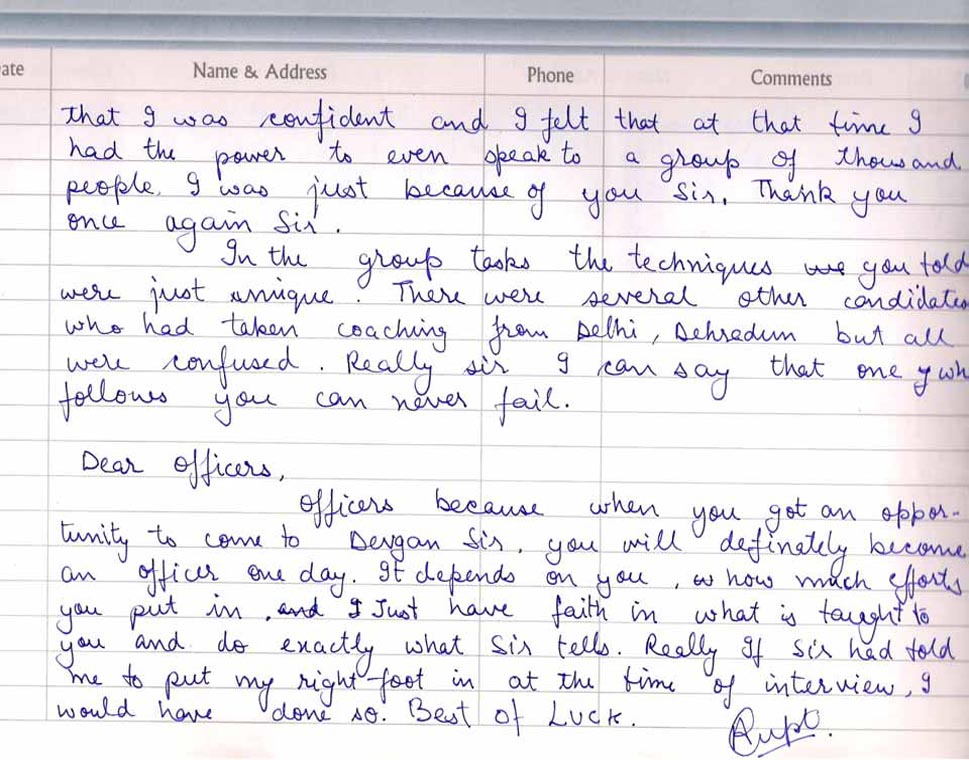 ate Name & Address Phone Comments
that I was confident and I felt that at that time I
had the power to even speak to a group of thousand
people. I was just because of you Sir. Thank you
once again Sir.
In the group tasks the techniques we you told
were just unique. There were several other candidates
who had taken coaching from Delhi, Dehradun but all
were confused. Really sir I can say that one y wh
follows you can never fail.
Dear Officers,
Officers because when you got an oppor-
tunity to come to Devgan Sir, you will definately become
an officer one day. It depends on you, how much efforts
you put in, and I Just have faith in what is taught to
you and do exactly what Sir tells. Really If Sir had told
me to put my right foot in at the time of interview, I
would have done so. Best of Luck.